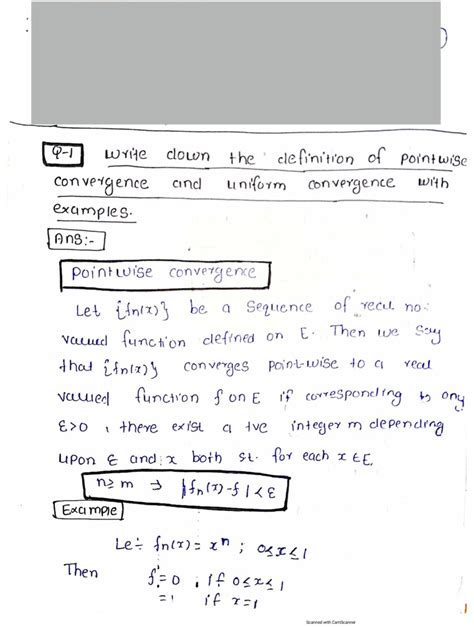 Q-1 Write down the definition of pointwise
convergence and uniform convergence with
examples.
Ans:-
Pointwise convergence
Let {fn(x)} be a Sequence of real no.
valued function defined on E. Then we say
that {fn(x)} converges point-wise to a real
valued function f on E if corresponding to any
ε>0 , there exist a +ve integer m depending
upon ε and x both st. for each x ∈ E.
n≥m ⇒ |fn(x)-f|<ε
Example
Let fn(x) = xⁿ ; 0≤x≤1
Then f = 0 , if 0≤x≤1
=1 if x=1
Scanned with CamScanner
1